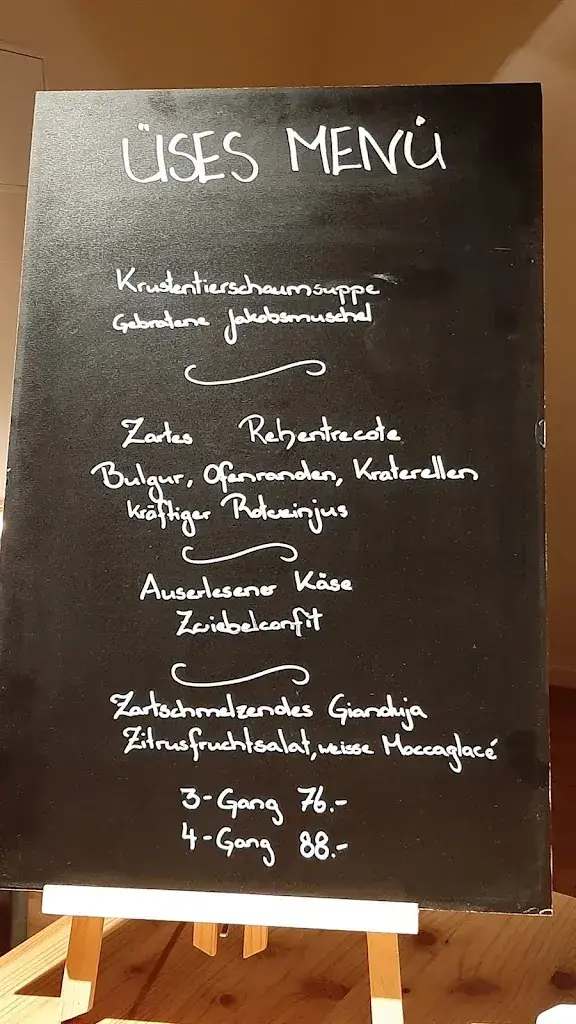 ÜSES MENÜ
Krustentierschaumsuppe
Gebratene Jakobsmuschel
Zartes Rehentrecote
Bulgur, Ofenranden, Kraterellen
kräftiger Rotweinjus
Auserlesener Käse
Zwiebelconfit
Zartschmelzendes Gianduja
Zitrusfruchtsalat, weisse Moccaglacé
3-Gang 76.-
4-Gang 88.-